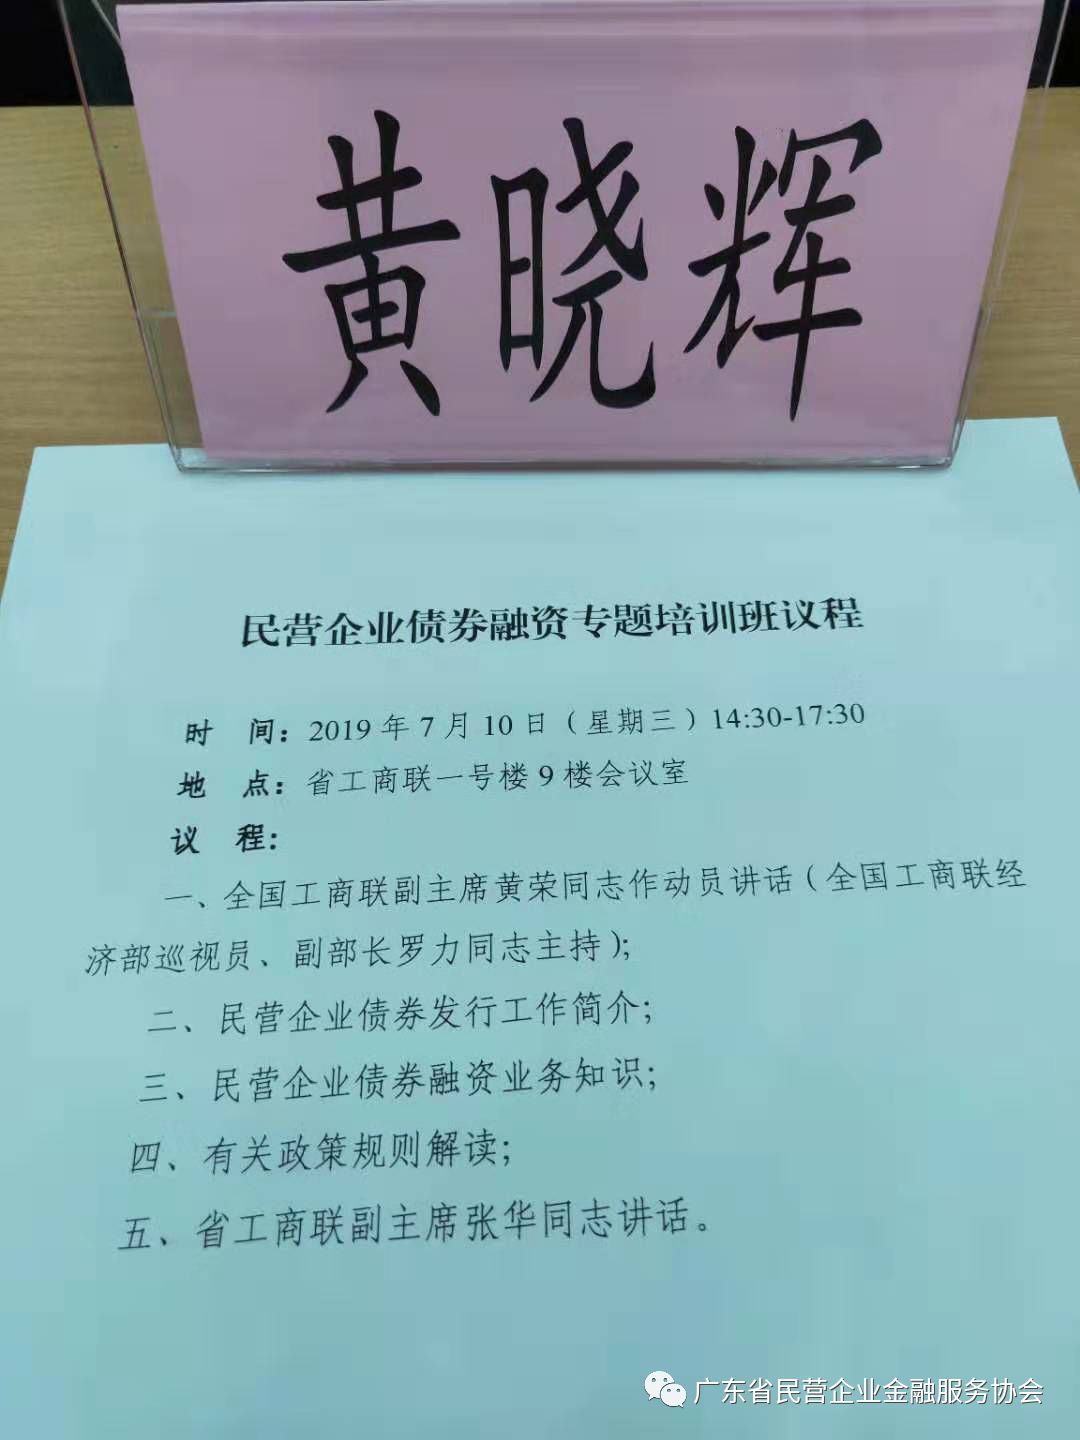 黄晓辉
民营企业债券融资专题培训班议程
时 间：2019年7月10日（星期三）14:30-17:30
地 点：省工商联一号楼9楼会议室
议 程：
一、全国工商联副主席黄荣同志作动员讲话（全国工商联经
济部巡视员、副部长罗力同志主持）；
二、民营企业债券发行工作简介；
三、民营企业债券融资业务知识；
四、有关政策规则解读；
五、省工商联副主席张华同志讲话。
广东省民营企业金融服务协会